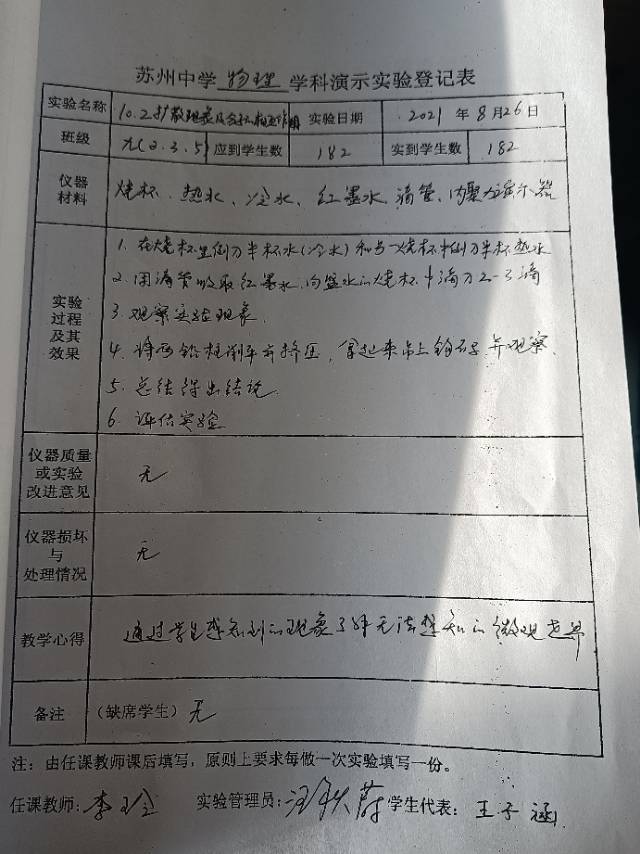 苏州中学 物理 学科演示实验登记表
实验名称 10.2扩散现象及分子相互作用 实验日期 2021 年 8 月 26 日
班级 九(2.3.5) 应到学生数 182 实到学生数 182
仪器材料 烧杯、热水、冷水、红墨水、滴管、内聚力演示器
实验过程及其效果
1. 在烧杯里倒入半杯水(冷水)和另一烧杯中倒入半杯热水
2. 用滴管吸取红墨水,向盛水的烧杯中滴入2-3滴
3. 观察实验现象.
4. 将两铅柱削平并挤压,拿起来吊上钩码,并观察.
5. 总结得出结论
6. 评估实验
仪器质量或实验改进意见 无
仪器损坏与处理情况 无
教学心得 通过学生感知到的现象了解无法感知的微观世界
备注 (缺席学生) 无
注:由任课教师课后填写,原则上要求每做一次实验填写一份。
任课教师: 李玲 实验管理员: 学生代表: 王子涵